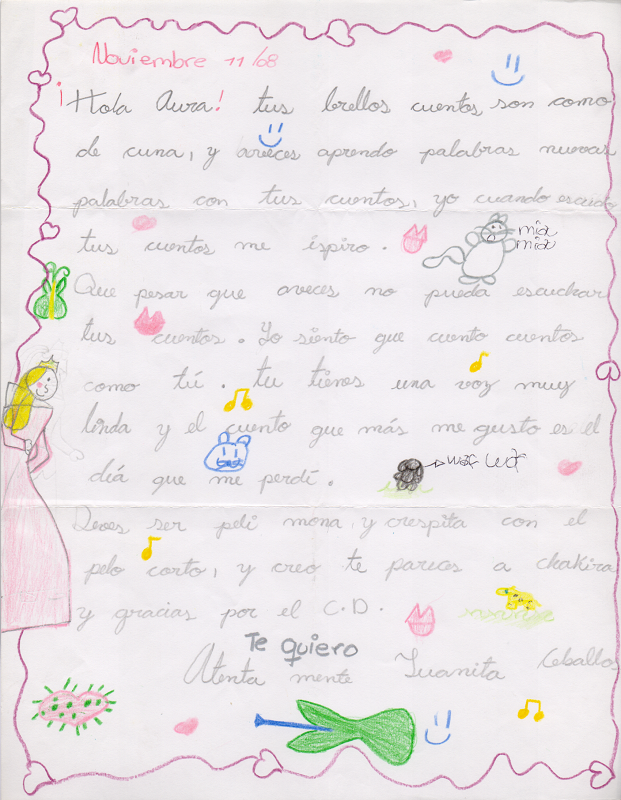 Noviembre 11/08
¡Hola Aura! tus brellos cuentos son como
de cuna, y aveces aprendo palabras nuevas
palabras con tus cuentos, yo cuando escucho
tus cuentos me ispiro.
mia
mia
Que pesar que aveces no pueda escuchar
tus cuentos. Yo siento que cuento cuentos
como tú. tu tienes una voz muy
linda y el cuento que más me gusto es el
día que me perdí.
Deves ser peli mona, y crespita con el
pelo corto, y creo te pareces a chakira
y gracias por el C.D.
Te quiero
Atenta mente Juanita Ceballos